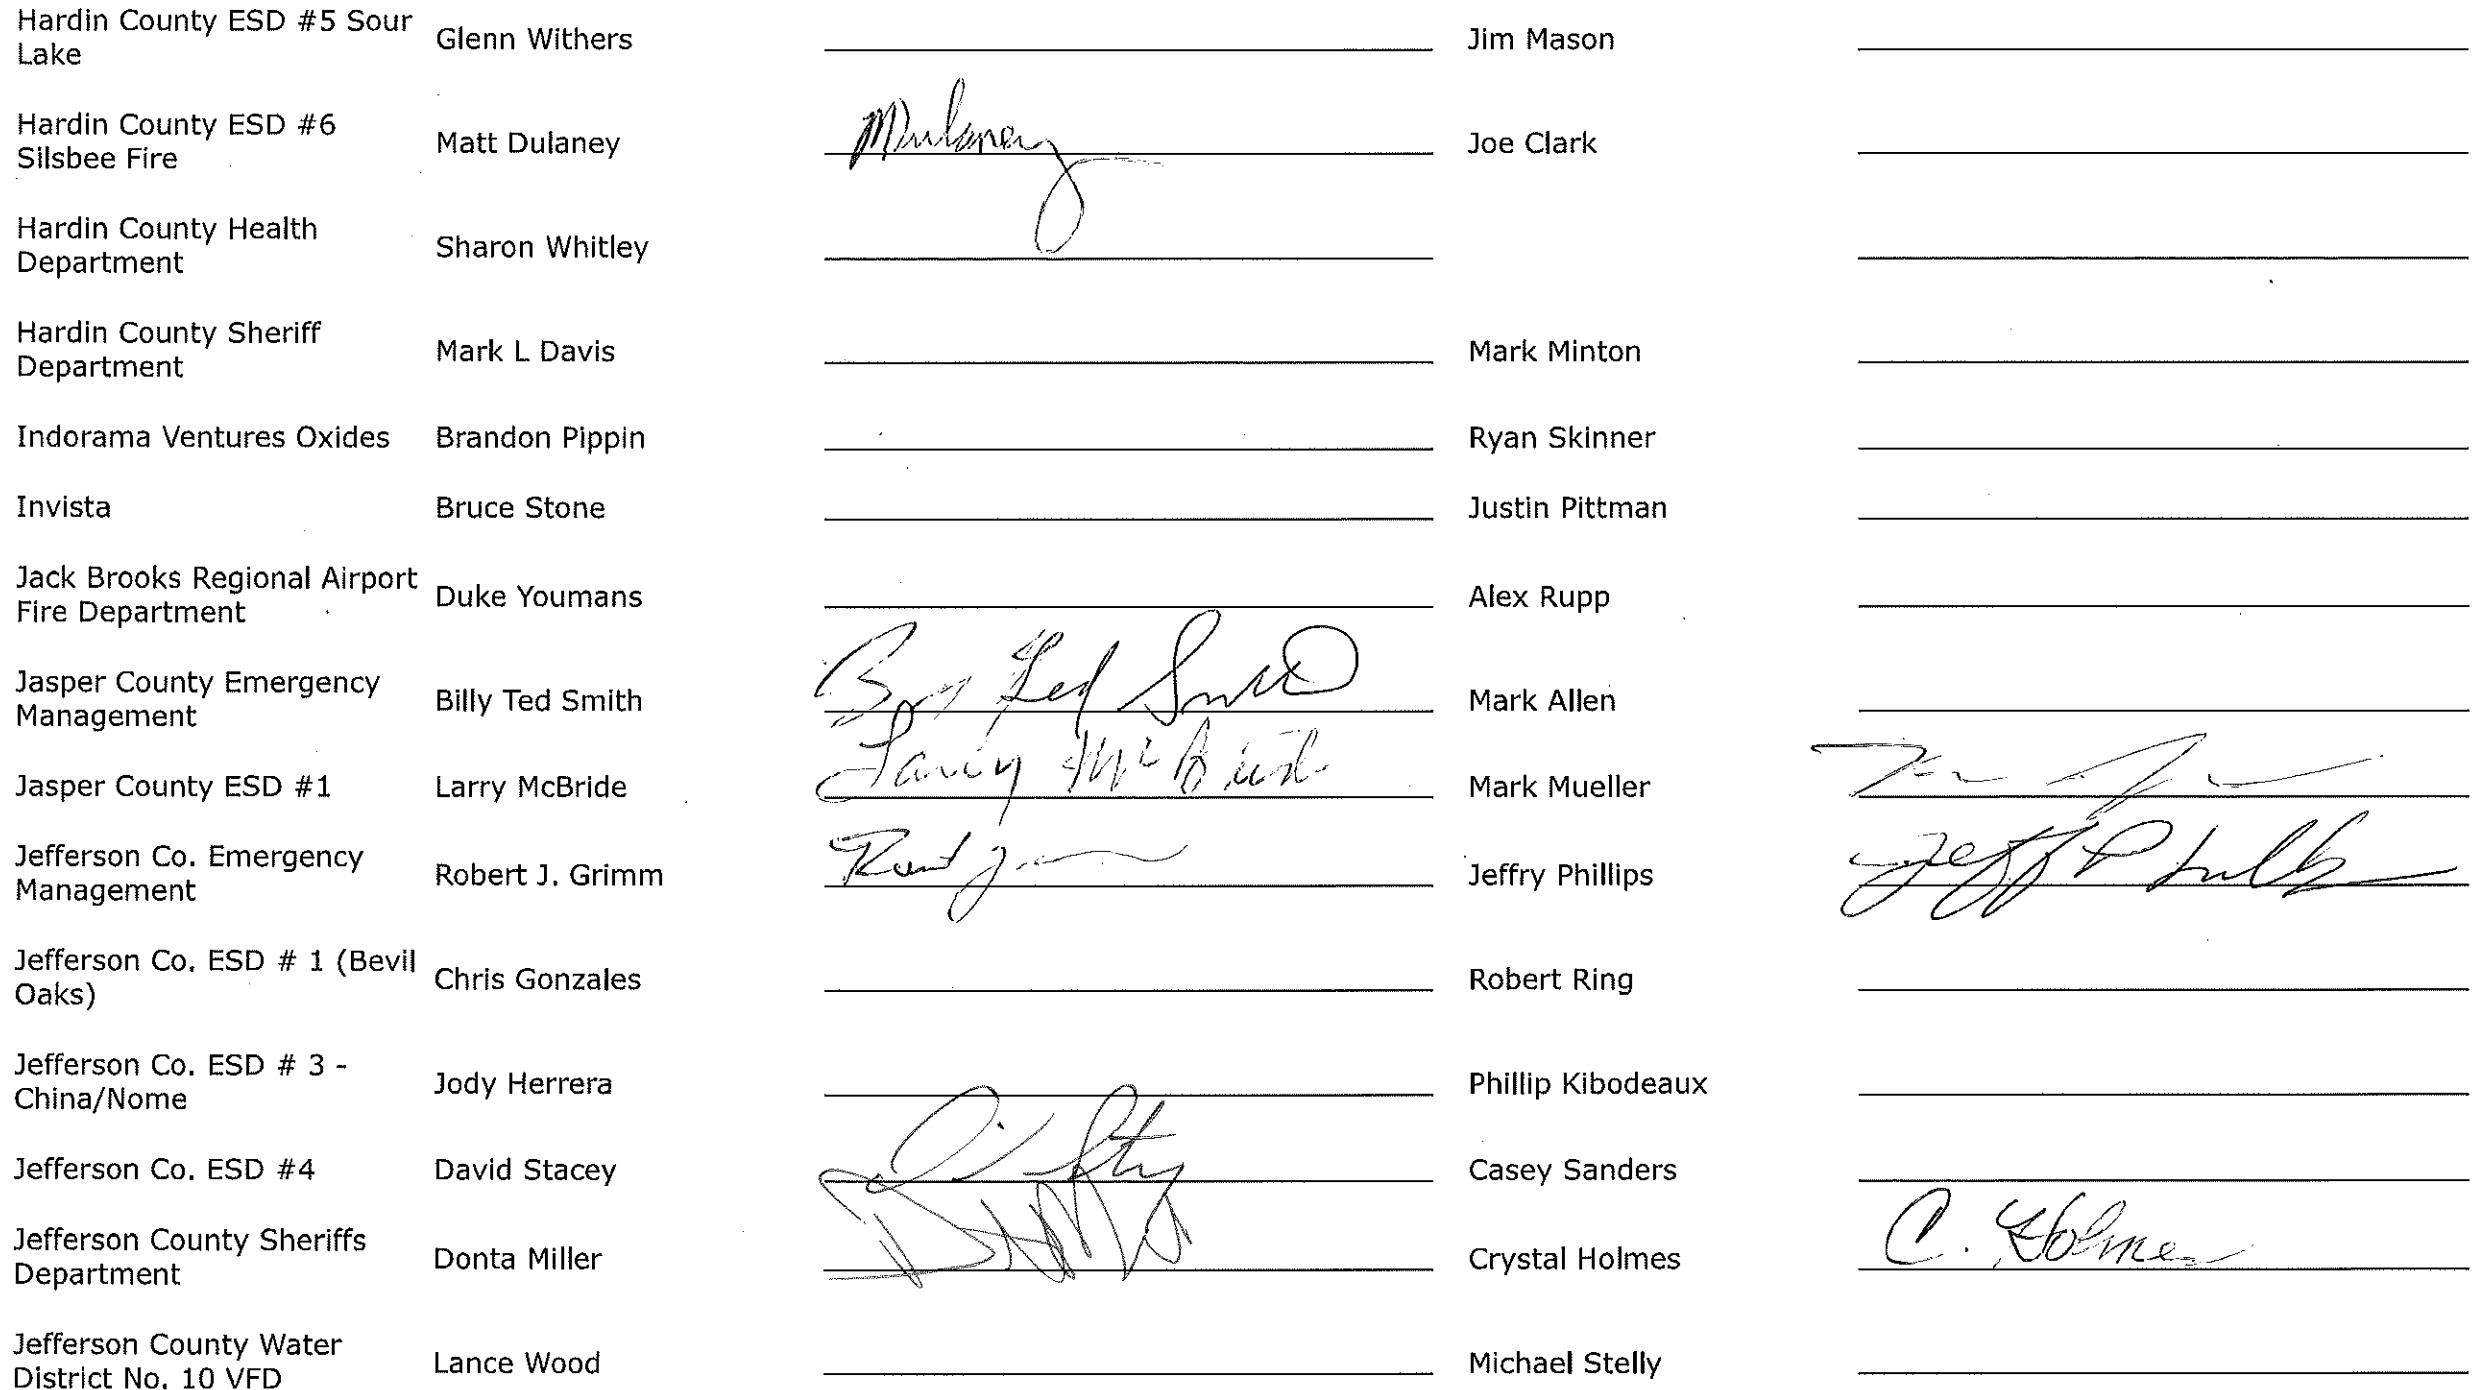 Hardin County ESD #5 Sour Lake Glenn Withers Jim Mason
Hardin County ESD #6 Silsbee Fire Matt Dulaney MDulaney Joe Clark
Hardin County Health Department Sharon Whitley
Hardin County Sheriff Department Mark L Davis Mark Minton
Indorama Ventures Oxides Brandon Pippin Ryan Skinner
Invista Bruce Stone Justin Pittman
Jack Brooks Regional Airport Fire Department Duke Youmans Alex Rupp
Jasper County Emergency Management Billy Ted Smith Ted Smith Mark Allen
Jasper County ESD #1 Larry McBride Larry McBride Mark Mueller
Jefferson Co. Emergency Management Robert J. Grimm Jeffry Phillips Jeff Phillips
Jefferson Co. ESD # 1 (Bevil Oaks) Chris Gonzales Robert Ring
Jefferson Co. ESD # 3 - China/Nome Jody Herrera Phillip Kibodeaux
Jefferson Co. ESD #4 David Stacey Casey Sanders
Jefferson County Sheriffs Department Donta Miller Crystal Holmes C. Holmes
Jefferson County Water District No. 10 VFD Lance Wood Michael Stelly